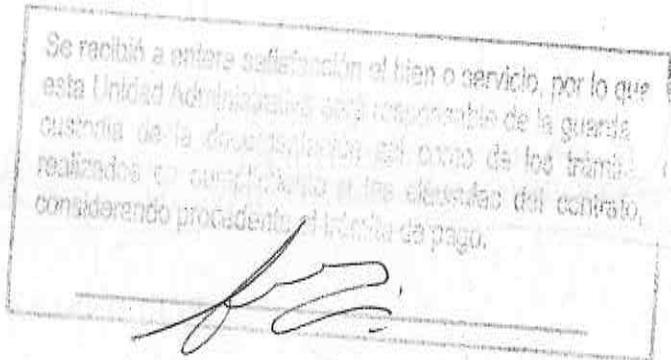 Se recibió a entera satisfacción el bien o servicio, por lo que
esta Unidad Administrativa será responsable de la guarda
custodia de la documentación así como de los trámi
realizados en cumplimiento a las cláusulas del contrato,
considerando procedente el trámite de pago.